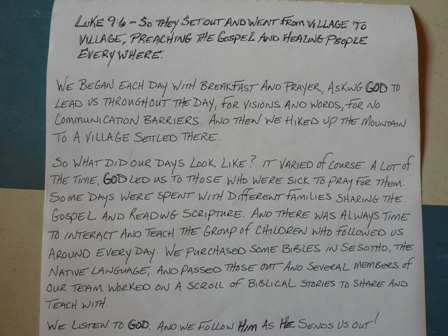 LUKE 9:6 - SO THEY SET OUT AND WENT FROM VILLAGE TO
VILLAGE, PREACHING THE GOSPEL AND HEALING PEOPLE
EVERYWHERE.
WE BEGAN EACH DAY WITH BREAKFAST AND PRAYER, ASKING GOD TO
LEAD US THROUGHOUT THE DAY, FOR VISIONS AND WORDS, FOR NO
COMMUNICATION BARRIERS. AND THEN WE HIKED UP THE MOUNTAIN
TO A VILLAGE SETTLED THERE.
SO WHAT DID OUR DAYS LOOK LIKE? IT VARIED OF COURSE. A LOT OF
THE TIME, GOD LED US TO THOSE WHO WERE SICK TO PRAY FOR THEM.
SOME DAYS WERE SPENT WITH DIFFERENT FAMILIES SHARING THE
GOSPEL AND READING SCRIPTURE. AND THERE WAS ALWAYS TIME
TO INTERACT AND TEACH THE GROUP OF CHILDREN WHO FOLLOWED US
AROUND EVERY DAY. WE PURCHASED SOME BIBLES IN SESOTHO, THE
NATIVE LANGUAGE, AND PASSED THOSE OUT AND SEVERAL MEMBERS OF
OUR TEAM WORKED ON A SCROLL OF BIBLICAL STORIES TO SHARE AND
TEACH WITH.
WE LISTEN TO GOD. AND WE FOLLOW HIM AS HE SENDS US OUT!